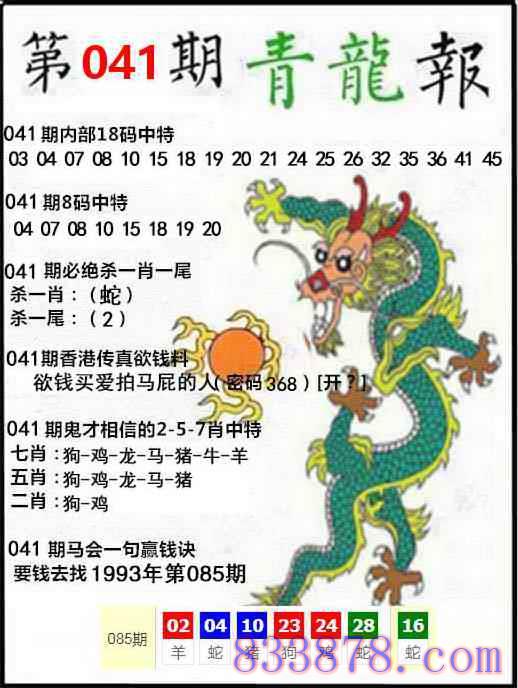 第041期 青龍報
041期内部18码中特
03 04 07 08 10 15 18 19 20 21 24 25 26 32 35 36 41 45
041期8码中特
04 07 08 10 15 18 19 20
041 期必绝杀一肖一尾
杀一肖：（蛇）
杀一尾：（2）
041期香港传真欲钱料
欲钱买爱拍马屁的人（密码368）[开？]
041期鬼才相信的2-5-7肖中特
七肖：狗-鸡-龙-马-猪-牛-羊
五肖：狗-鸡-龙-马-猪
二肖：狗-鸡
041期马会一句赢钱诀
要钱去找1993年第085期
085期 02 04 10 23 24 28 16
羊 蛇 猪 狗 鸡 蛇 蛇
833878.com